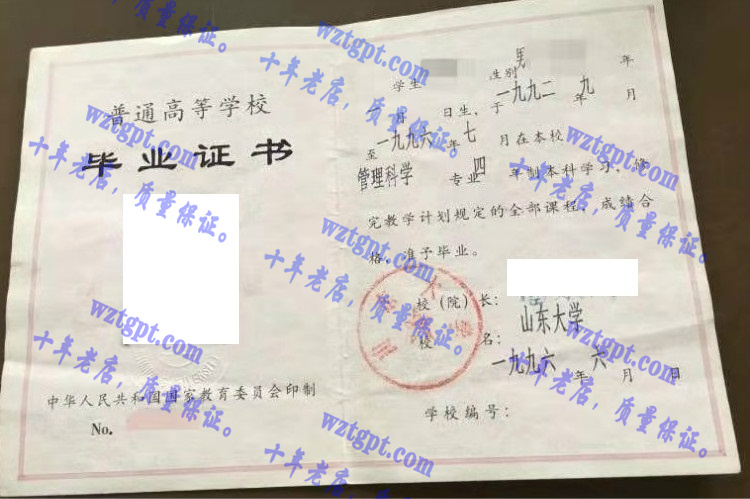 普通高等学校
毕业证书
中华人民共和国国家教育委员会印制
No.
学生 性别 男 年
月 日生，于 一九九二 年 九 月
至 一九九六 年 七 月在本校
管理科学 专业 四 年制本科学习，修
完教学计划规定的全部课程，成绩合
格，准予毕业。
校（院）长：
校 名： 山东大学
一九九六 年 六 月 日
学校编号：
wztgpt.com
十年老店，质量保证。
wztgpt.com
十年老店，质量保证。
wztgpt.com
十年老店，质量保证。
wztgpt.com
十年老店，质量保证。
wztgpt.com
十年老店，质量保证。
wztgpt.com
十年老店，质量保证。
wztgpt.com
十年老店，质量保证。
wztgpt.com
十年老店，质量保证。